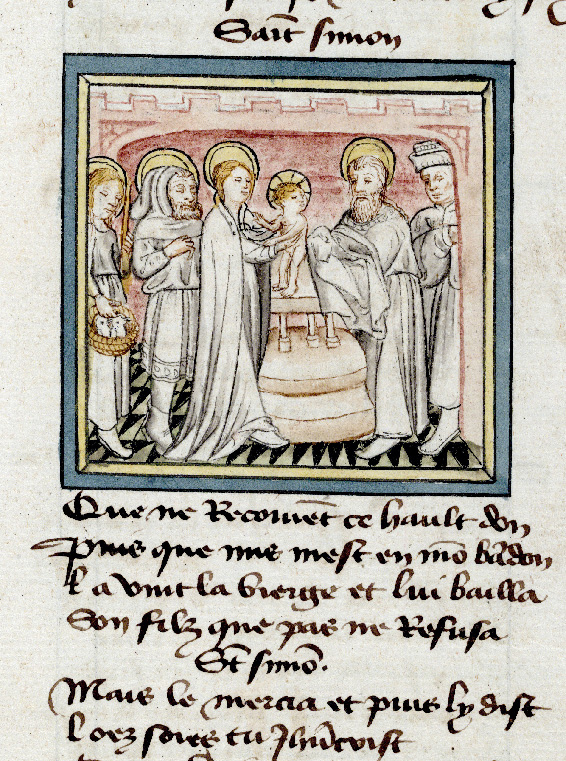 Sait simon
Que ne Recoiuet ce hault don
Puis que mis mest en mo badon
La vint la vierge et lui bailla
Son filz que pas ne Refusa
St simo.
Mais le mercia et puis ly dist
Loez soies tu Jhucrist